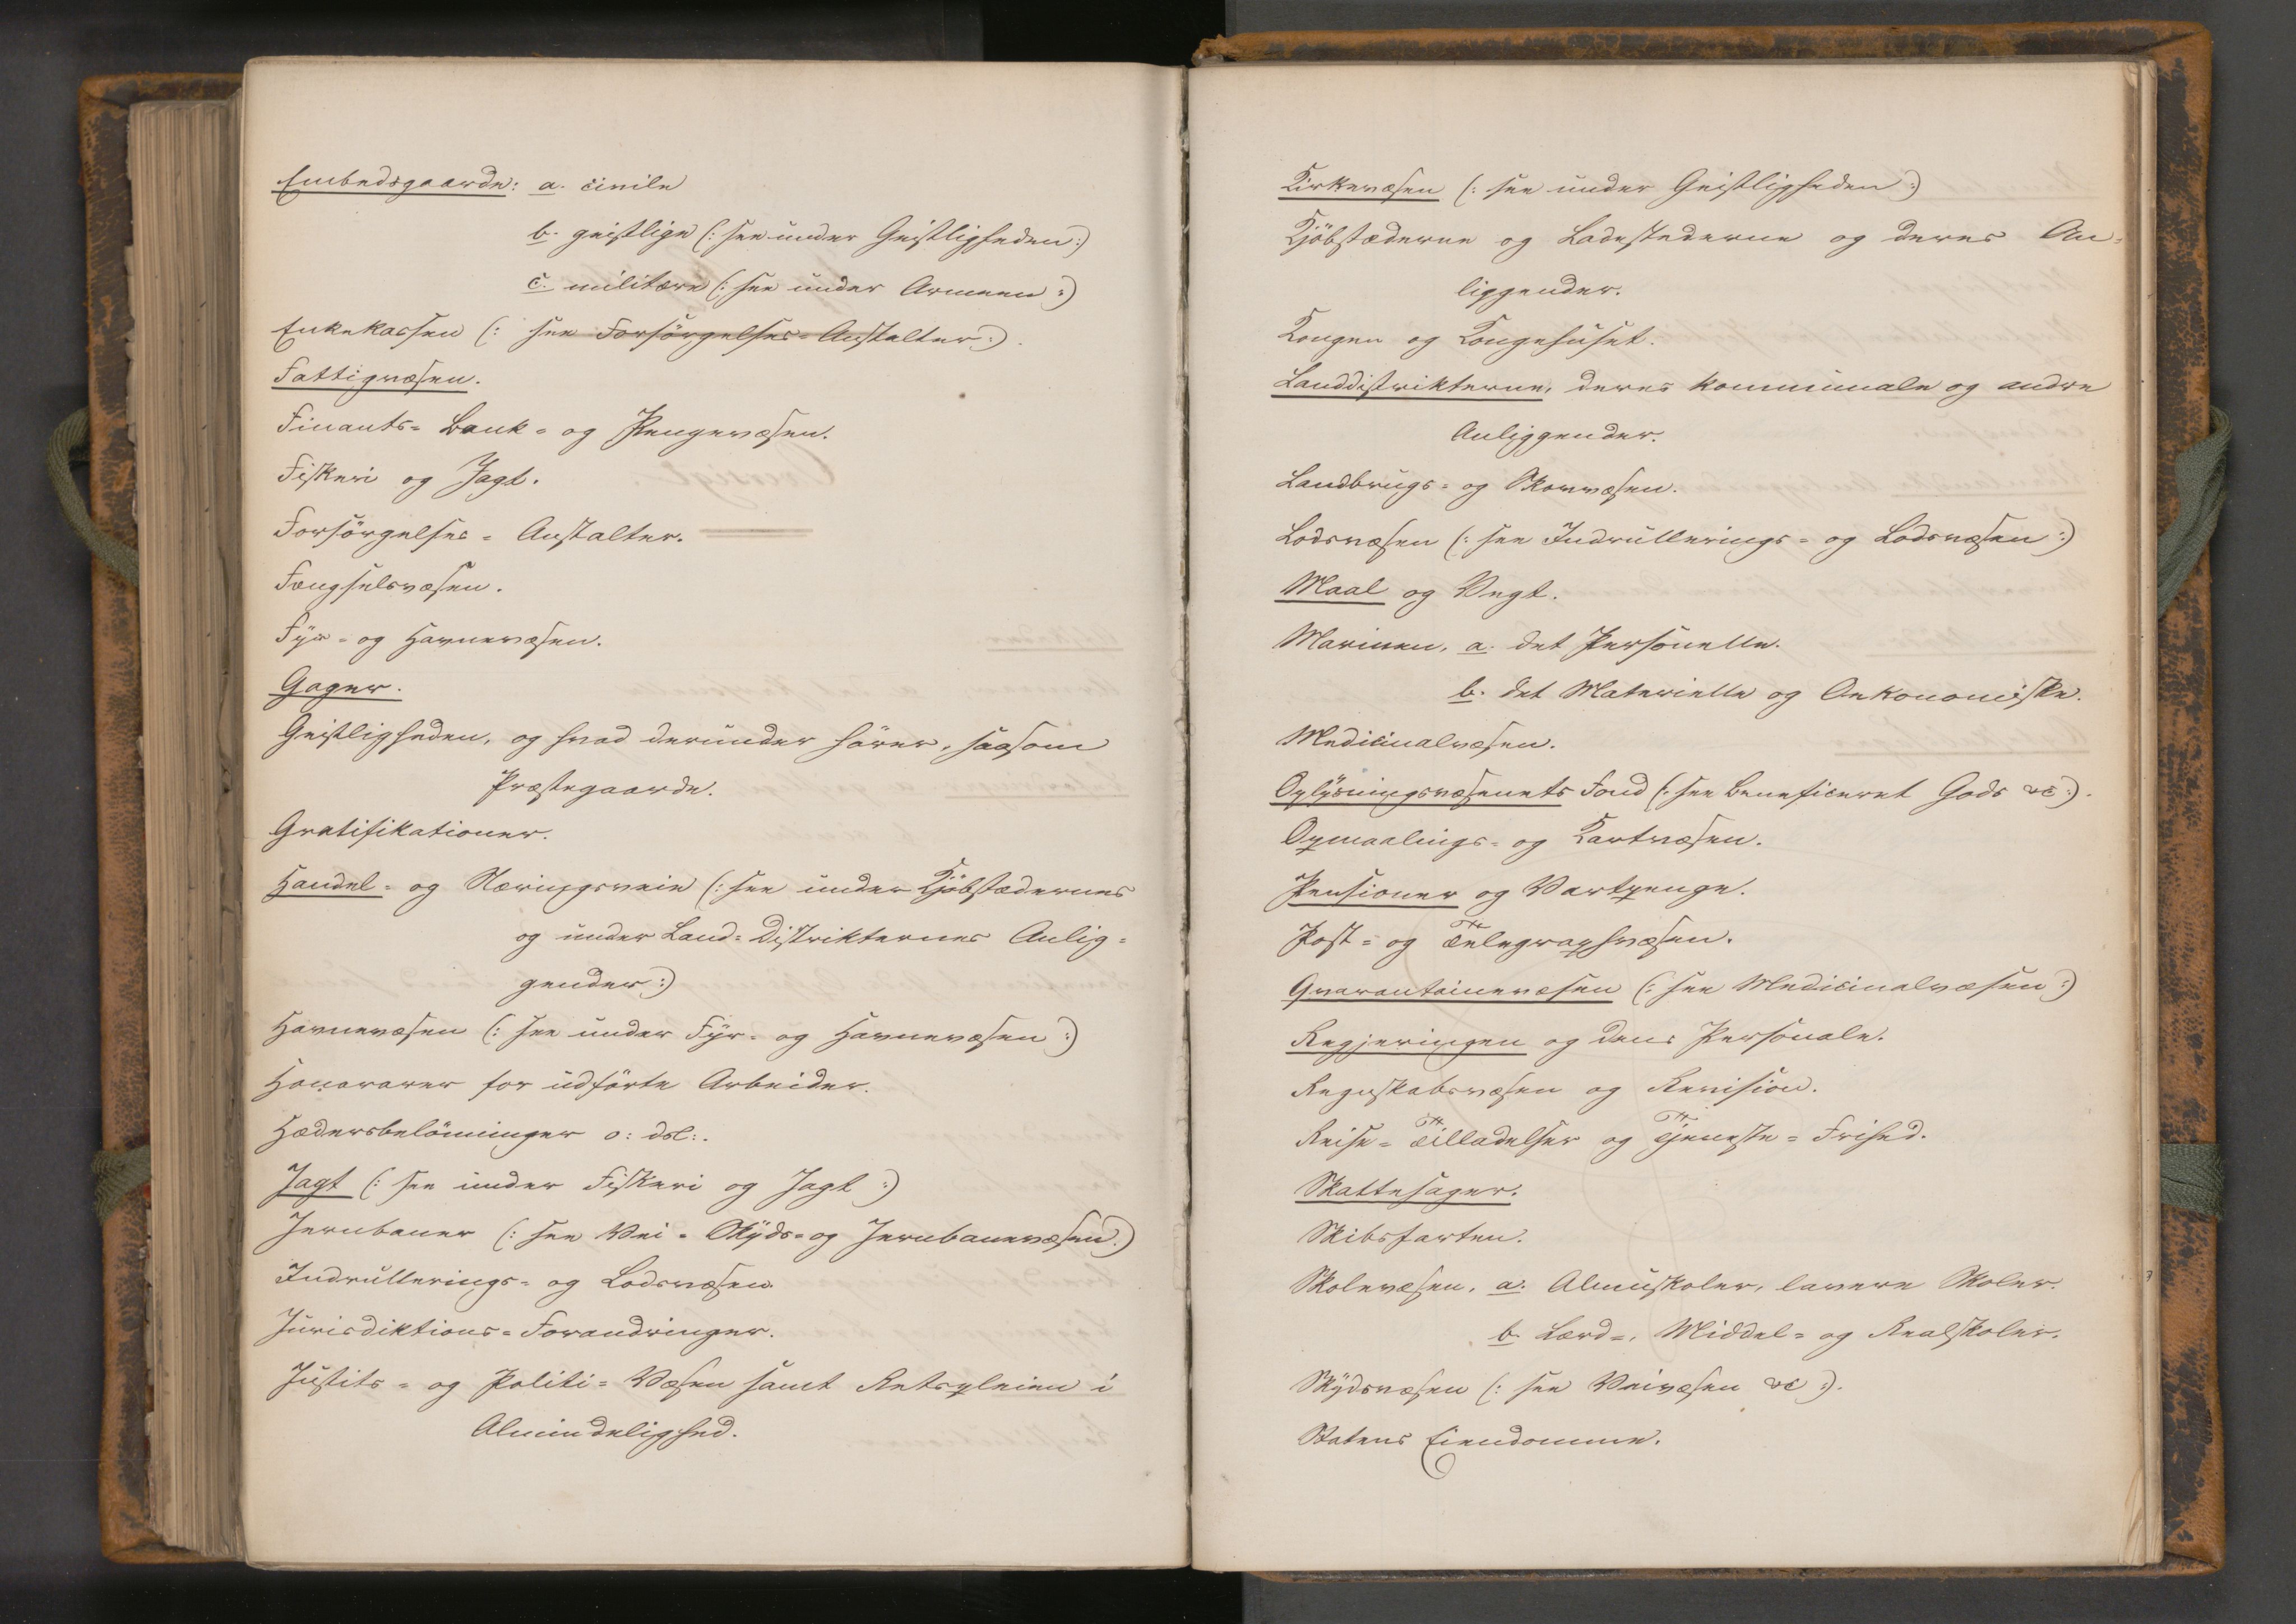 Embedsgaarde: a. civile
b. geistlige (: see under Geistligheden :)
c. militære (: see under Armeen :)
Enkekassen (: see Forsörgelses-Anstalter :).
Fattigvæsen.
Finants- Bank- og Pengevæsen.
Fiskeri og Jagt.
Forsörgelses- Anstalter.
Fængselsvæsen.
Fyr- og Havnevæsen.
Gager.
Geistligheden, og hvad derunder hörer, saasom
Præstegaarde.
Gratifikationer.
Handel- og Næringsveie (: see under Kjöbstædernes
og under Land-Distrikternes Anlig-
gender :)
Havnevæsen (: see under Fyr- og Havnevæsen :)
Honorarer for udförte Arbeider.
Hædersbelönninger o: dsl:.
Jagt (: see under Fiskeri og Jagt :)
Jernbaner (: see Vei- Skyds- og Jernbanevæsen :)
Indrullerings- og Lodsvæsen.
Jurisdiktions-Forandringer.
Justits- og Politi-Væsen samt Retspleien i
Almindelighed.
Kirkevæsen (: see under Geistligheden :)
Kjöbstæderne og Ladestederne og deres An-
liggender.
Kongen og Kongehuset.
Landdistrikterne, deres kommunale og andre
Anliggender.
Landbrugs- og Skovvæsen.
Lodsvæsen (: see Indrullerings- og Lodsvæsen :)
Maal og Vægt.
Marinen, a. det Personelle.
b. det Materielle og Oekonomiske.
Medicinalvæsen.
Oplysningsvæsenets Fond (: see Beneficeret Gods &c :).
Opmaalings- og Kartvæsen.
Pensioner og Vartpenge.
Post- og Telegraphvæsen.
Qvarantainevæsen (: see Medicinalvæsen :)
Regjeringen og dens Personale.
Regnskabsvæsen og Revision.
Reise-Tilladelser og Tjeneste-Frihed.
Skattesager.
Skibsfarten.
Skolevæsen, a. Almuskoler, lavere Skoler.
b. Lærd-, Middel- og Realskoler.
Skydsvæsen (: see Veivæsen &c :).
Statens Eiendomme.